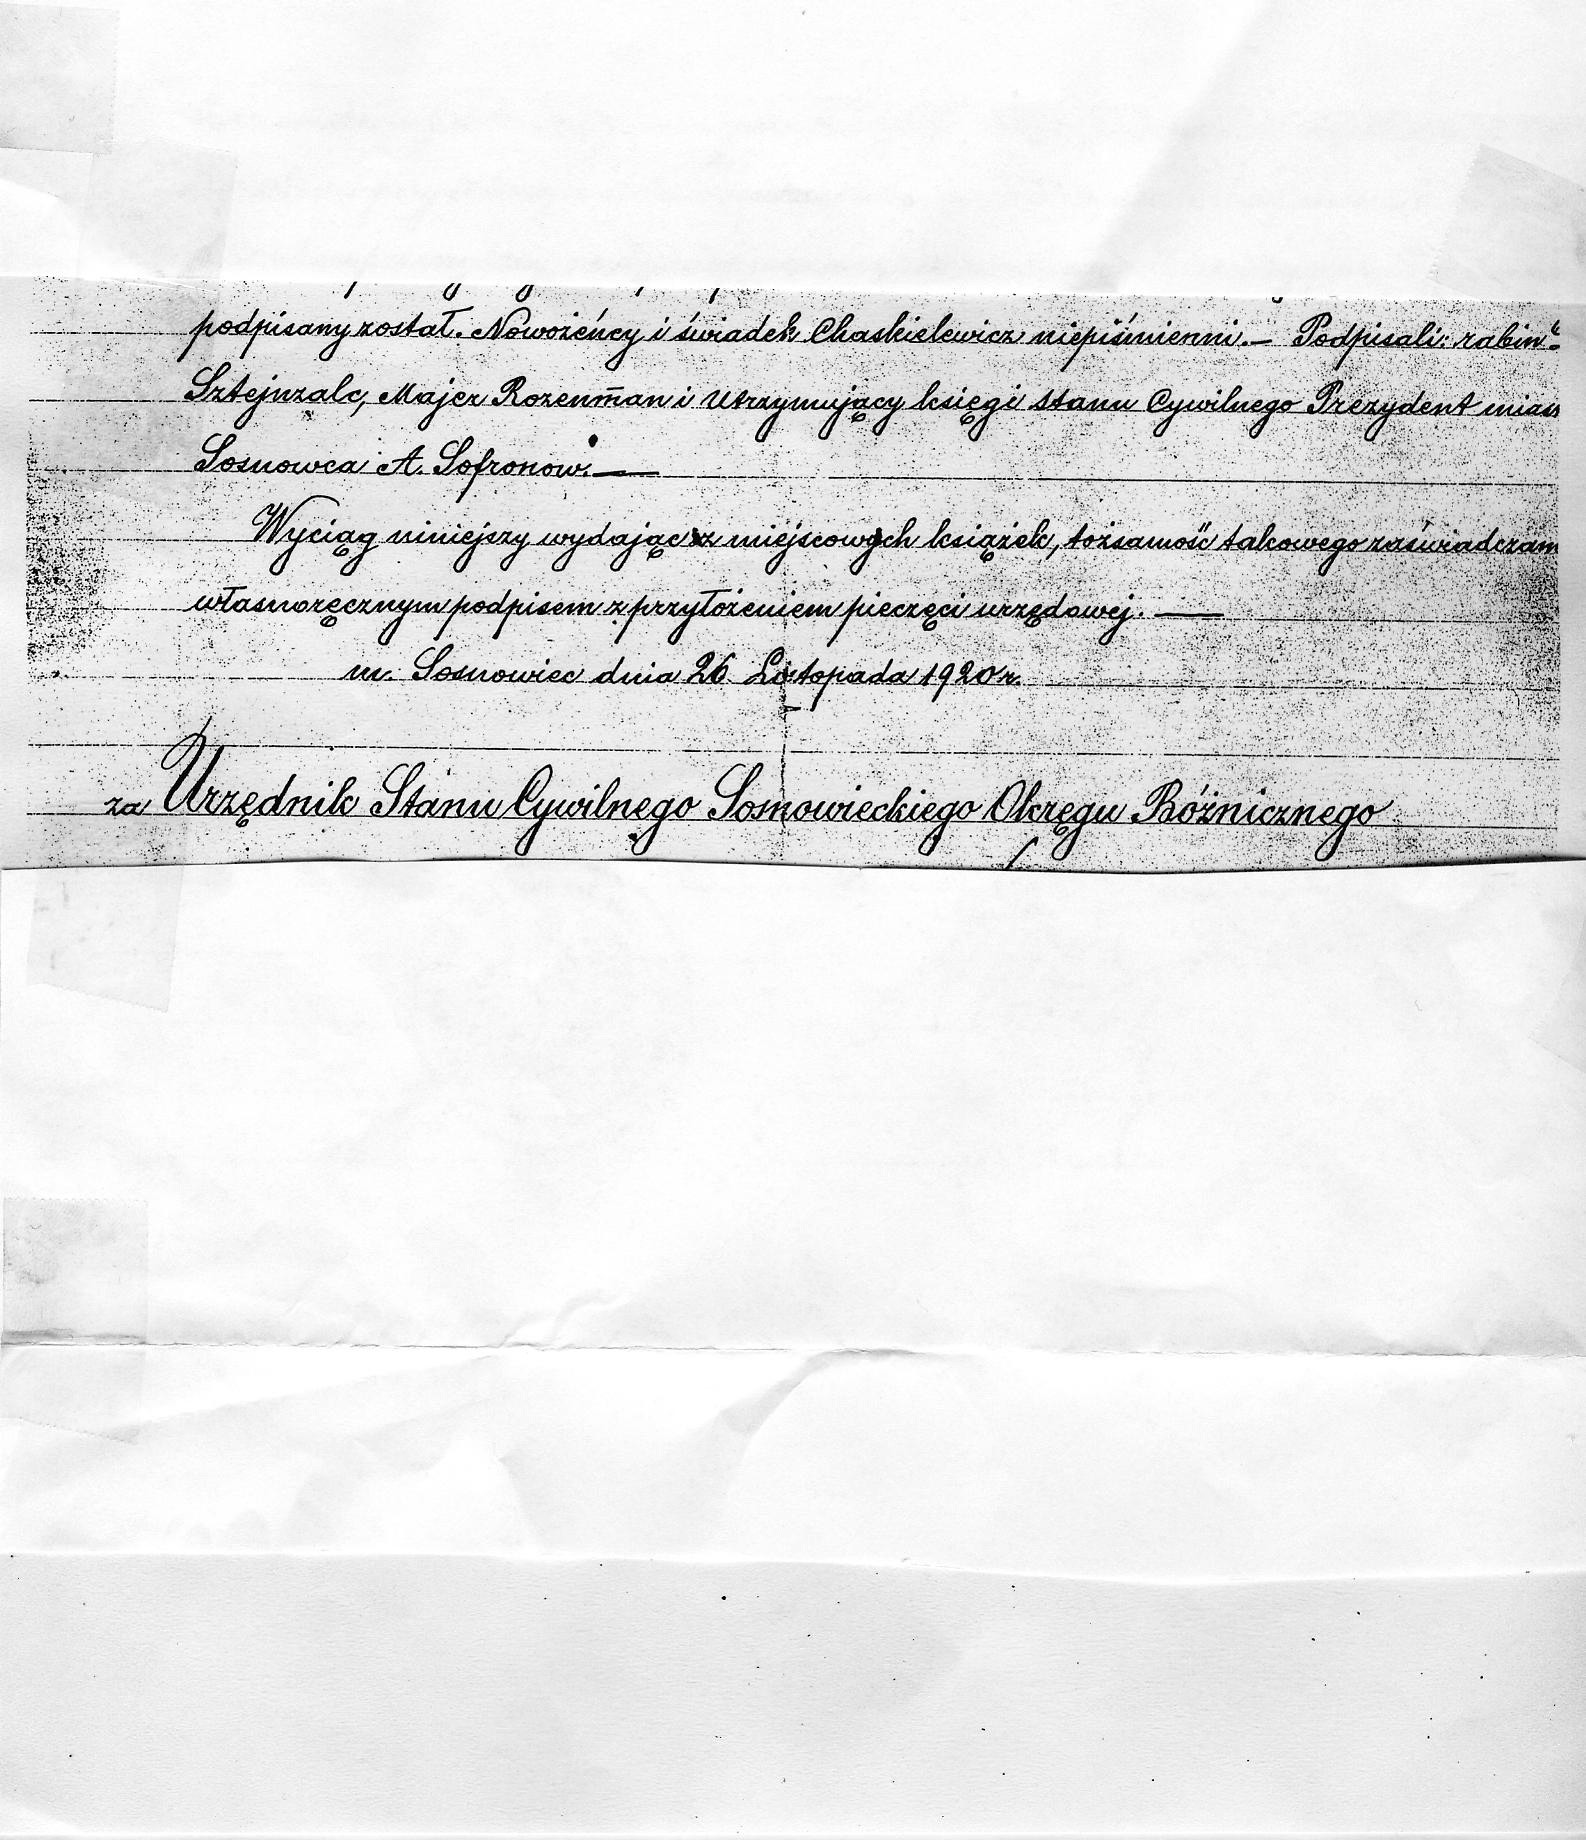 podpisany został. Nowożeńcy i świadek Chaskielewicz niepiśmienni. — Podpisali: rabin
Sztejnzalc, Majer Rozenman i utrzymujący księgi stanu Cywilnego Prezydent mias
Sosnowca A. Sofronow. —
Wyciąg niniejszy wydając z miejscowych książek, tożsamość takowego zaświadczam
własnoręcznym podpisem z przyłożeniem pieczęci urzędowej. —
m. Sosnowiec dnia 26 Listopada 1920 r.
za Urzędnik Stanu Cywilnego Sosnowieckiego Okręgu Bóżnicznego